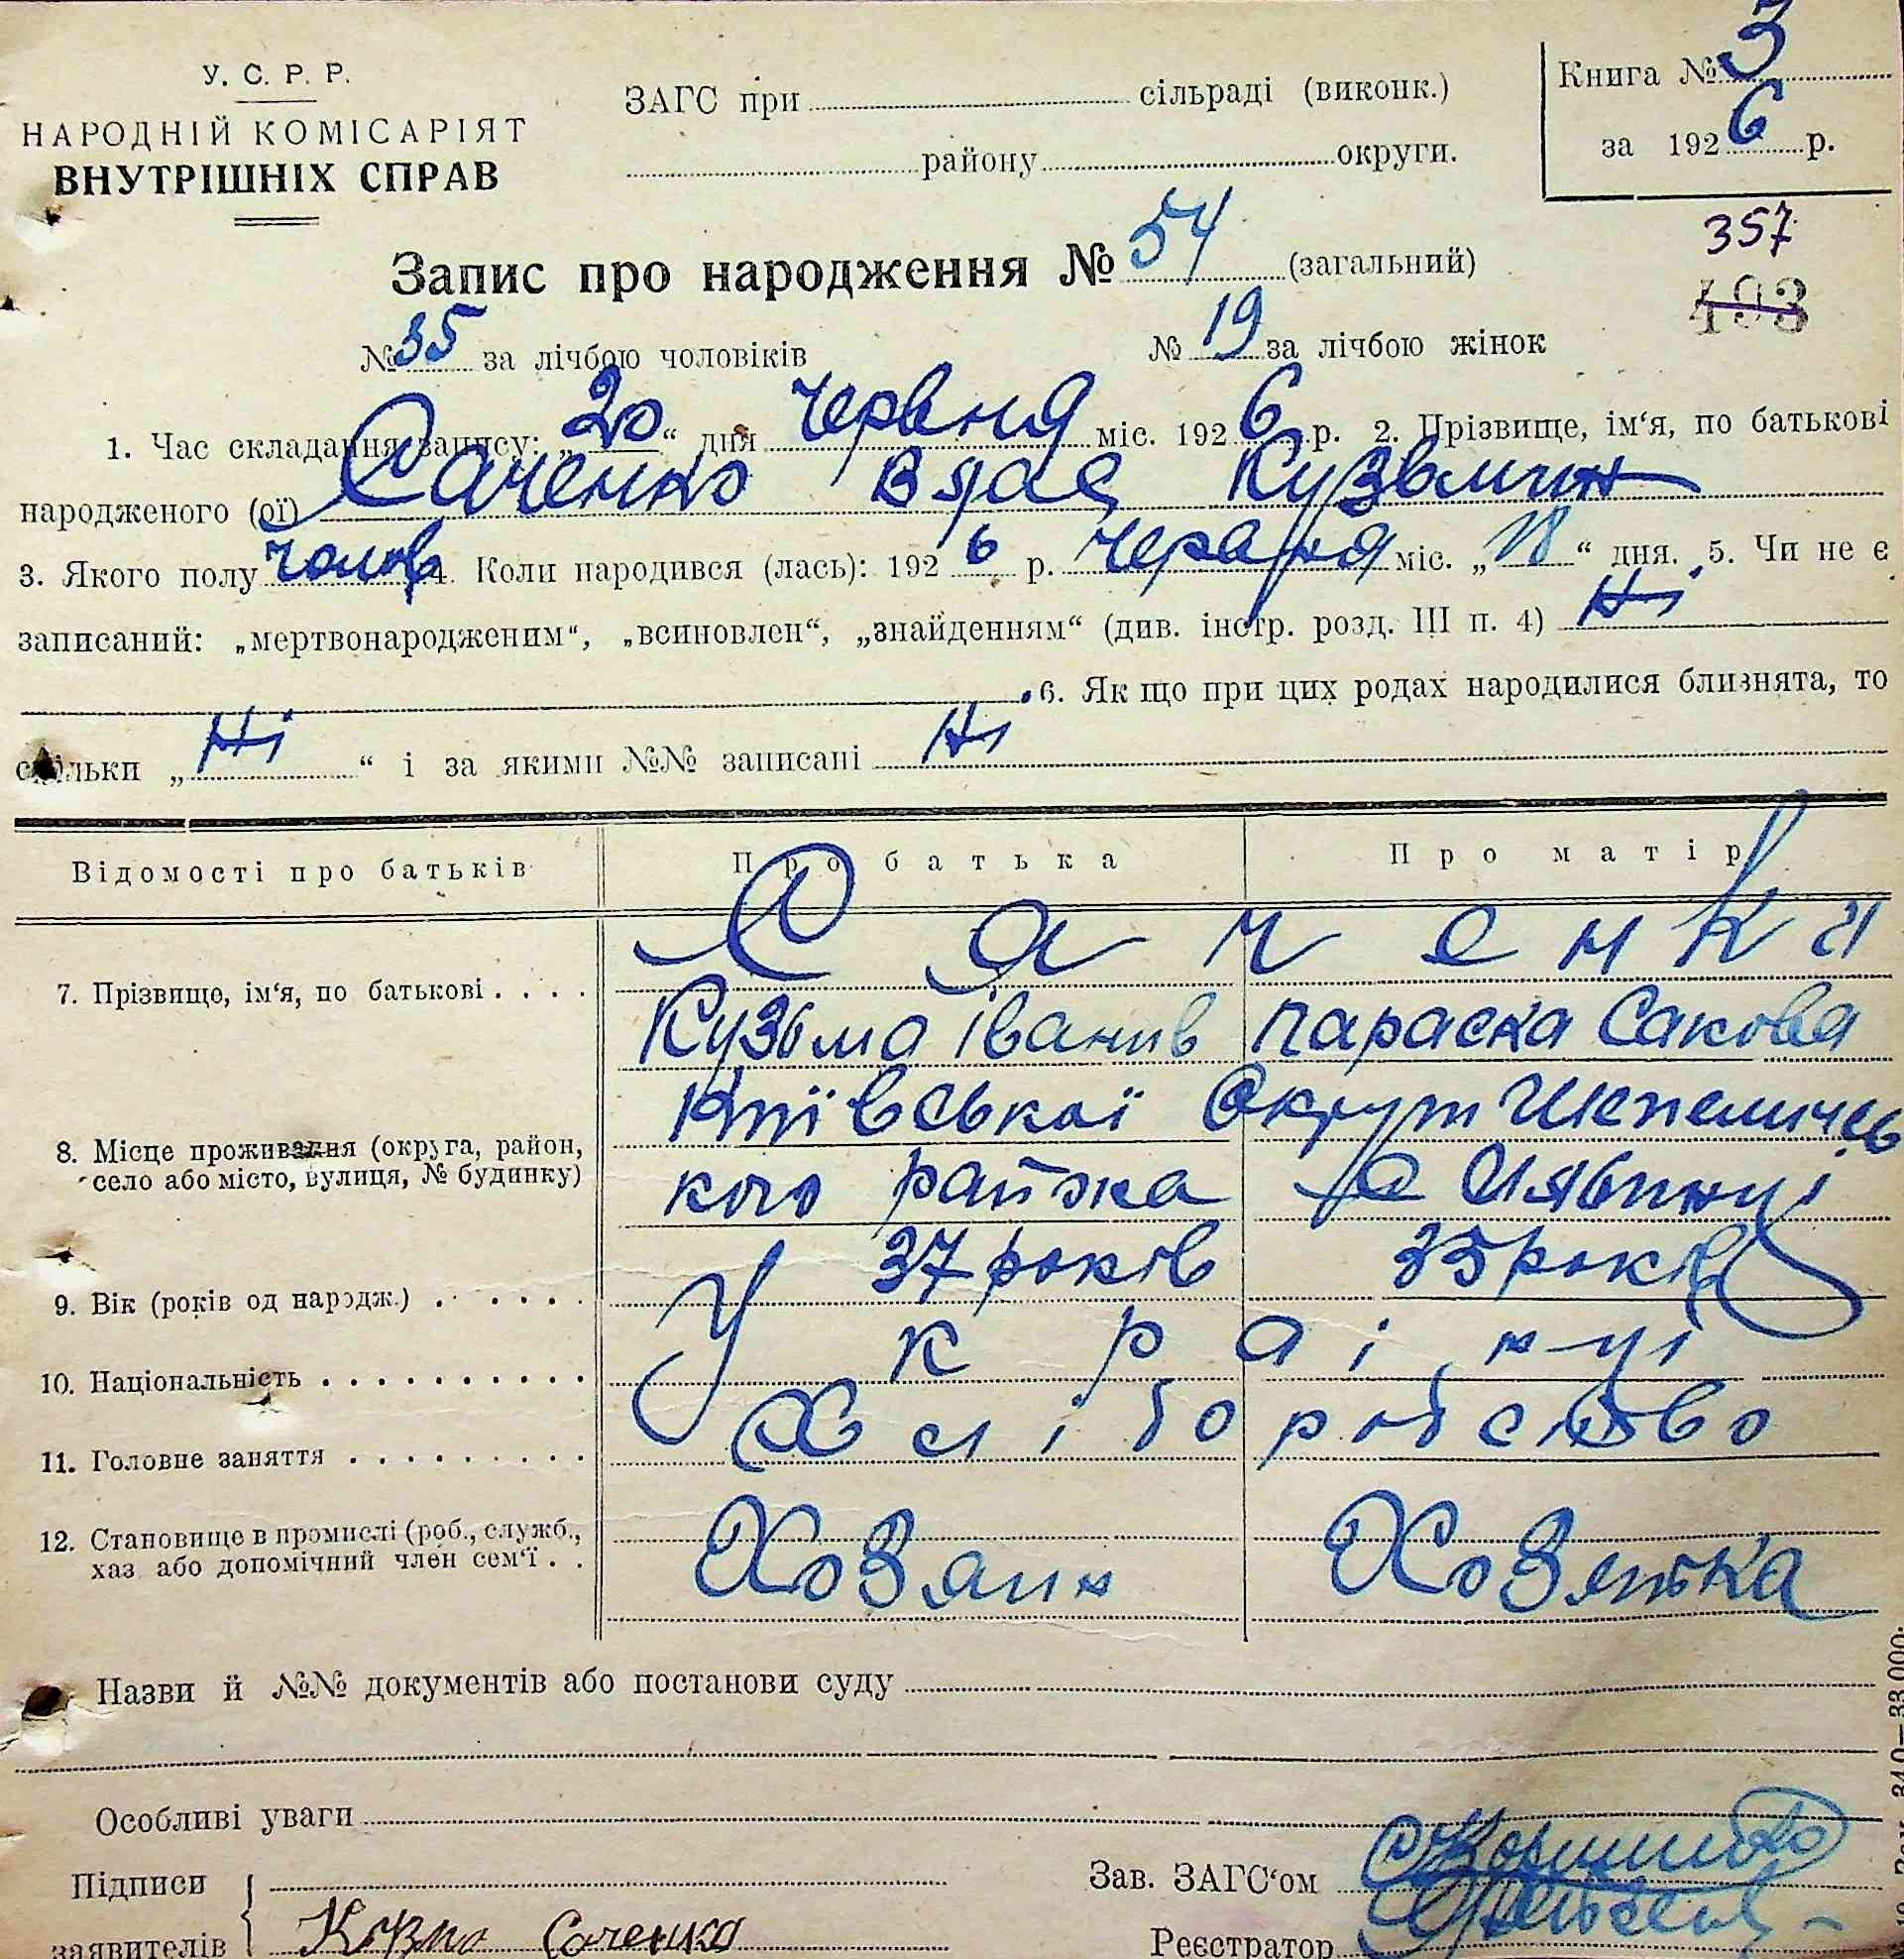 У. С. Р. Р.
НАРОДНІЙ КОМІСАРІЯТ
ВНУТРІШНІХ СПРАВ
ЗАГС при сільраді (виконк.)
району округи.
Книга № 3
за 1926 р.
357
493
Запис про народження № 54 (загальний)
№ 35 за лічбою чоловіків № 19 за лічбою жінок
1. Час складання запису: „20“ дня червня міс. 1926 р. 2. Прізвище, ім‘я, по батькові
народженого (ої) Саченко Влас Кузьмин
3. Якого полу чолов 4. Коли народився (лась): 1926 р. червня міс. „18“ дня. 5. Чи не є
записаний: „мертвонародженим“, „всиновлен“, „знайденням“ (див. інстр. розд. III п. 4) Ні
6. Як що при цих родах народилися близнята, то
скільки „Ні“ і за якими №№ записані Ні
Відомості про батьків Про батька Про матір
7. Прізвище, ім‘я, по батькові . . . . Саченки
Кузьма Іванив Параска Сакова
8. Місце проживання (округа, район, село або місто, вулиця, № будинку) Київської Округи Шепеличсь
кого района с
9. Вік (років од народж.) . . . . . . 37 років 35 років
10. Національність . . . . . . . . . . Українці
11. Головне заняття . . . . . . . . . Хліборобство
12. Становище в промислі (роб., служб., хаз або допомічний член сем‘ї . . Хозяин Хозяйка
Назви й №№ документів або постанови суду
Особливі уваги
Підписи
заявителів Кузма Саченко
Зав. ЗАГС‘ом
Реєстратор